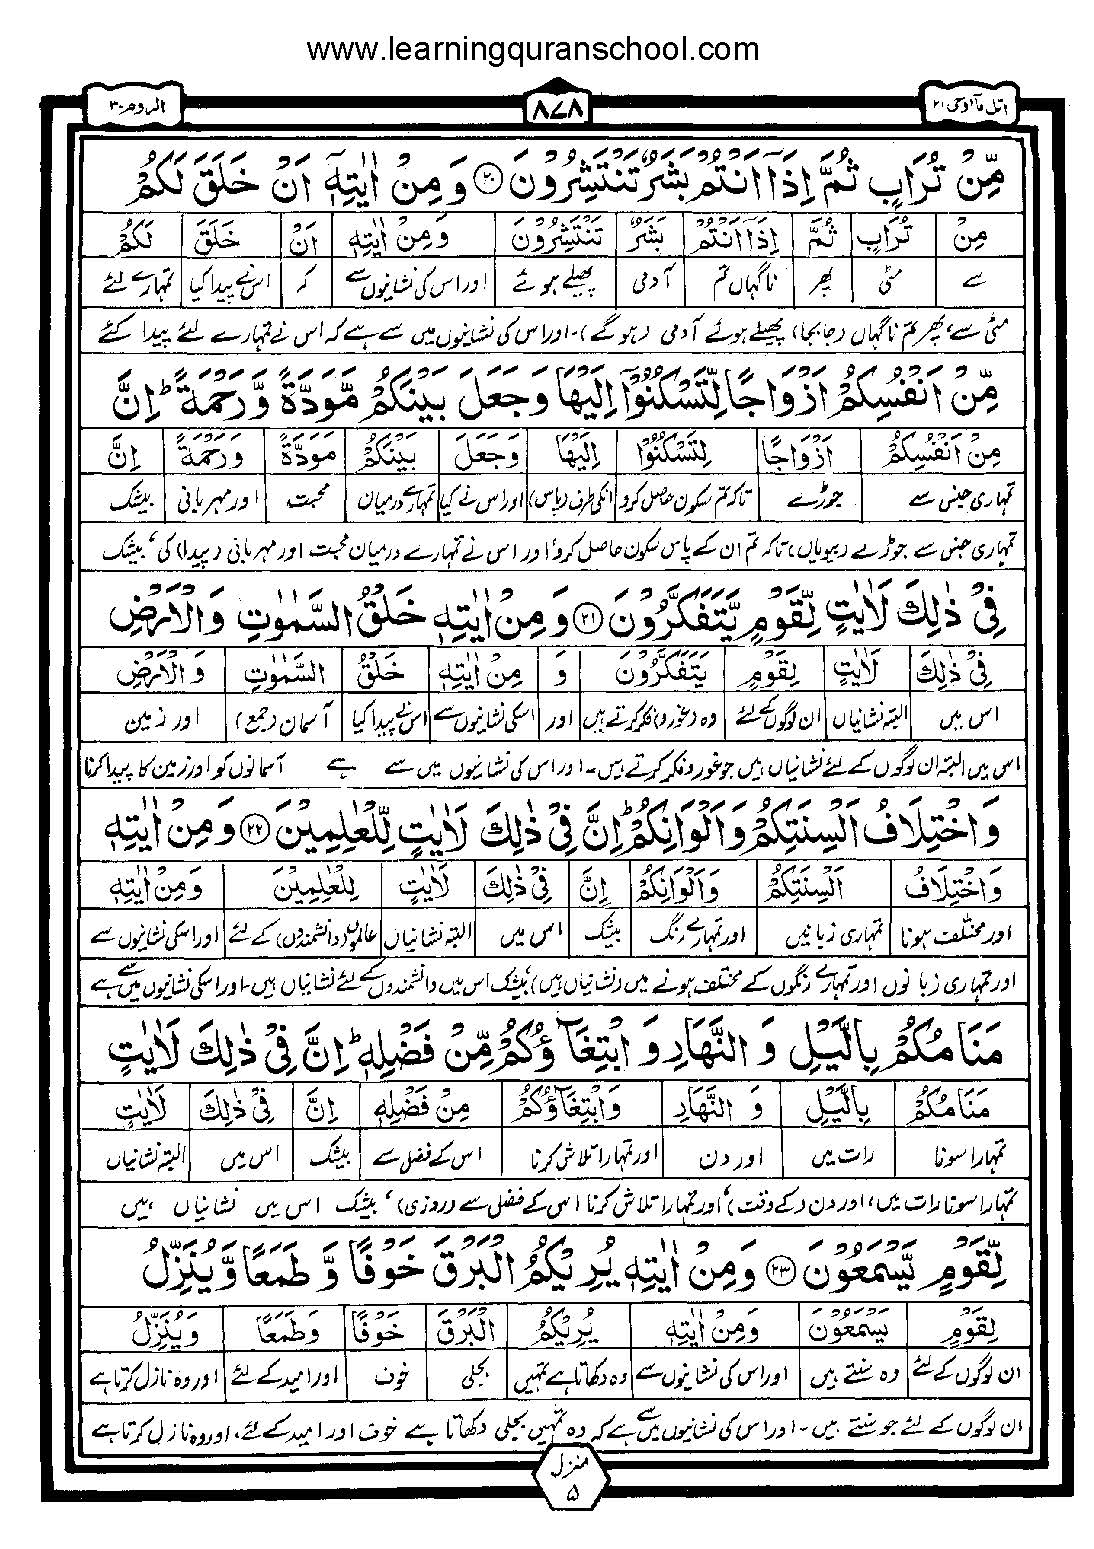 www.learningquranschool.com
الروم ۳۰
۸۷۸
اتل مآ اوحی ۲۱
مِّنْ تُرَابٍ ثُمَّ اِذَآ اَنْتُمْ بَشَرٌ تَنْتَشِرُوْنَ ﴿۲۰﴾ وَ مِنْ اٰيٰتِهٖۤ اَنْ خَلَقَ لَكُمْ
مِنْ تُرَابٍ ثُمَّ اِذَآ اَنْتُمْ بَشَرٌ تَنْتَشِرُوْنَ وَ مِنْ اٰيٰتِهٖ اَنْ خَلَقَ لَكُمْ
سے مٹی پھر ناگہاں تم آدمی پھیلے ہوئے اور اس کی نشانیوں سے کہ اس نے پیدا کیا تمہارے لئے
مٹی سے، پھر تم ناگہاں (جابجا) پھیلے ہوئے آدمی (ہوگے)۔ اور اس کی نشانیوں میں سے ہے کہ اس نے تمہارے لئے پیدا کئے
مِّنْ اَنْفُسِكُمْ اَزْوَاجًا لِّتَسْكُنُوْۤا اِلَيْهَا وَ جَعَلَ بَيْنَكُمْ مَّوَدَّةً وَّ رَحْمَةً ؕ اِنَّ
مِنْ اَنْفُسِكُمْ اَزْوَاجًا لِتَسْكُنُوْۤا اِلَيْهَا وَ جَعَلَ بَيْنَكُمْ مَوَدَّةً وَ رَحْمَةً اِنَّ
تمہاری جنس سے جوڑے تاکہ تم سکون حاصل کرو انکی طرف (پاس) اور اس نے کیا تمہارے درمیان محبت اور مہربانی بیشک
تمہاری جنس سے جوڑے (بیویاں) تاکہ تم ان کے پاس سکون حاصل کرو، اور اس نے تمہارے درمیان محبت اور مہربانی (پیدا) کی، بیشک
فِيْ ذٰلِكَ لَاٰيٰتٍ لِّقَوْمٍ يَّتَفَكَّرُوْنَ ﴿۲۱﴾ وَ مِنْ اٰيٰتِهٖ خَلْقُ السَّمٰوٰتِ وَ الْاَرْضِ
فِيْ ذٰلِكَ لَاٰيٰتٍ لِقَوْمٍ يَتَفَكَّرُوْنَ وَ مِنْ اٰيٰتِهٖ خَلْقُ السَّمٰوٰتِ وَ الْاَرْضِ
اس میں البتہ نشانیاں ان لوگوں کے لئے وہ (غور و) فکر کرتے ہیں اور اسکی نشانیوں سے اس نے پیدا کیا آسمان (جمع) اور زمین
اس میں البتہ ان لوگوں کے لئے نشانیاں ہیں جو غور و فکر کرتے ہیں۔ اور اس کی نشانیوں میں سے ہے آسمانوں کو اور زمین کا پیدا کرنا
وَ اخْتِلَافُ اَلْسِنَتِكُمْ وَ اَلْوَانِكُمْ ؕ اِنَّ فِيْ ذٰلِكَ لَاٰيٰتٍ لِّلْعٰلِمِيْنَ ﴿۲۲﴾ وَ مِنْ اٰيٰتِهٖ
وَ اخْتِلَافُ اَلْسِنَتِكُمْ وَ اَلْوَانِكُمْ اِنَّ فِيْ ذٰلِكَ لَاٰيٰتٍ لِلْعٰلِمِيْنَ وَ مِنْ اٰيٰتِهٖ
اور مختلف ہونا تمہاری زبانیں اور تمہارے رنگ بیشک اس میں البتہ نشانیاں عالموں (دانشمندوں) کے لئے اور اسکی نشانیوں سے
اور تمہاری زبانوں اور تمہارے رنگوں کے مختلف ہونے میں (نشانیاں ہیں) بیشک اس میں دانشمندوں کے لئے نشانیاں ہیں۔ اور اسکی نشانیوں میں سے ہے
مَنَامُكُمْ بِالَّيْلِ وَ النَّهَارِ وَ ابْتِغَآؤُكُمْ مِّنْ فَضْلِهٖ ؕ اِنَّ فِيْ ذٰلِكَ لَاٰيٰتٍ
مَنَامُكُمْ بِالَّيْلِ وَ النَّهَارِ وَ ابْتِغَآؤُكُمْ مِنْ فَضْلِهٖ اِنَّ فِيْ ذٰلِكَ لَاٰيٰتٍ
تمہارا سونا رات میں اور دن اور تمہارا تلاش کرنا اس کے فضل سے بیشک اس میں البتہ نشانیاں
تمہارا سونا رات میں، اور دن (کے وقت)، اور تمہارا تلاش کرنا اس کے فضل سے (روزی)، بیشک اس میں نشانیاں ہیں
لِّقَوْمٍ يَّسْمَعُوْنَ ﴿۲۳﴾ وَ مِنْ اٰيٰتِهٖ يُرِيْكُمُ الْبَرْقَ خَوْفًا وَّ طَمَعًا وَّ يُنَزِّلُ
لِقَوْمٍ يَسْمَعُوْنَ وَ مِنْ اٰيٰتِهٖ يُرِيْكُمُ الْبَرْقَ خَوْفًا وَ طَمَعًا وَ يُنَزِّلُ
ان لوگوں کے لئے وہ سنتے ہیں اور اس کی نشانیوں سے وہ دکھاتا ہے تمہیں بجلی خوف اور امید کے لئے اور وہ نازل کرتا ہے
ان لوگوں کے لئے جو سنتے ہیں۔ اور اس کی نشانیوں میں سے ہے کہ وہ تمہیں بجلی دکھاتا ہے خوف اور امید کے لئے، اور وہ نازل کرتا ہے
منزل ۵